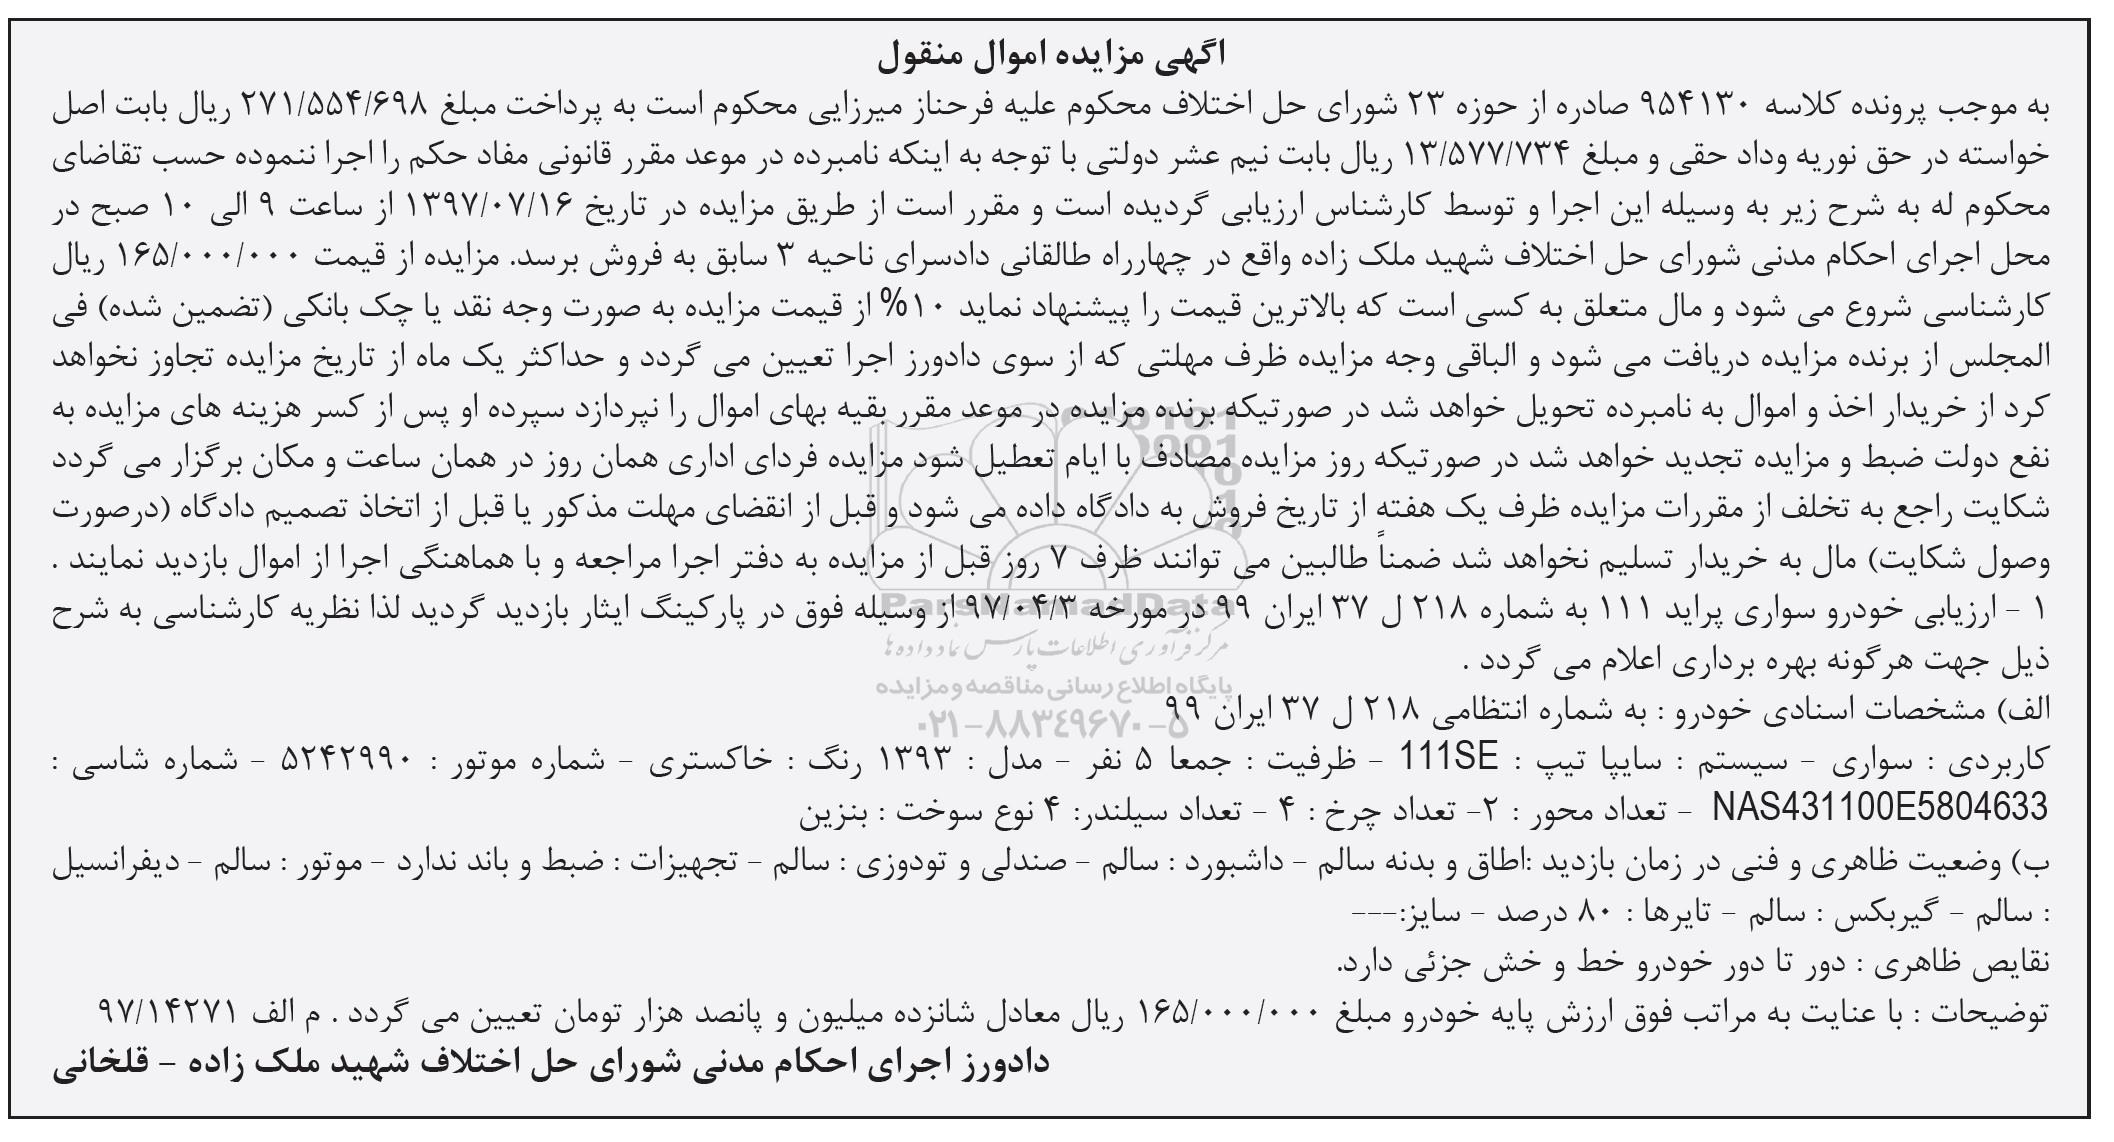 اگهی مزایده اموال منقول
به موجب پرونده کلاسه ۹۵۴۱۳۰ صادره از حوزه ۲۳ شورای حل اختلاف محکوم علیه فرحناز میرزایی محکوم است به پرداخت مبلغ ۲۷۱/۵۵۴/۶۹۸ ریال بابت اصل
خواسته در حق نوریه وداد حقی و مبلغ ۱۳/۵۷۷/۷۳۴ ریال بابت نیم عشر دولتی با توجه به اینکه نامبرده در موعد مقرر قانونی مفاد حکم را اجرا ننموده حسب تقاضای
محکوم له به شرح زیر به وسیله این اجرا و توسط کارشناس ارزیابی گردیده است و مقرر است از طریق مزایده در تاریخ ۱۳۹۷/۰۷/۱۶ از ساعت ۹ الی ۱۰ صبح در
محل اجرای احکام مدنی شورای حل اختلاف شهید ملک زاده واقع در چهارراه طالقانی دادسرای ناحیه ۳ سابق به فروش برسد. مزایده از قیمت ۱۶۵/۰۰۰/۰۰۰ ریال
کارشناسی شروع می شود و مال متعلق به کسی است که بالاترین قیمت را پیشنهاد نماید ۱۰% از قیمت مزایده به صورت وجه نقد یا چک بانکی (تضمین شده) فی
المجلس از برنده مزایده دریافت می شود و الباقی وجه مزایده ظرف مهلتی که از سوی دادورز اجرا تعیین می گردد و حداکثر یک ماه از تاریخ مزایده تجاوز نخواهد
کرد از خریدار اخذ و اموال به نامبرده تحویل خواهد شد در صورتیکه برنده مزایده در موعد مقرر بقیه بهای اموال را نپردازد سپرده او پس از کسر هزینه های مزایده به
نفع دولت ضبط و مزایده تجدید خواهد شد در صورتیکه روز مزایده مصادف با ایام تعطیل شود مزایده فردای اداری همان روز در همان ساعت و مکان برگزار می گردد
شکایت راجع به تخلف از مقررات مزایده ظرف یک هفته از تاریخ فروش به دادگاه داده می شود و قبل از انقضای مهلت مذکور یا قبل از اتخاذ تصمیم دادگاه (درصورت
وصول شکایت) مال به خریدار تسلیم نخواهد شد ضمناً طالبین می توانند ظرف ۷ روز قبل از مزایده به دفتر اجرا مراجعه و با هماهنگی اجرا از اموال بازدید نمایند .
۱ - ارزیابی خودرو سواری پراید ۱۱۱ به شماره ۲۱۸ ل ۳۷ ایران ۹۹ در مورخه ۹۷/۰۴/۳ از وسیله فوق در پارکینگ ایثار بازدید گردید لذا نظریه کارشناسی به شرح
ذیل جهت هرگونه بهره برداری اعلام می گردد .
الف) مشخصات اسنادی خودرو : به شماره انتظامی ۲۱۸ ل ۳۷ ایران ۹۹
کاربردی : سواری - سیستم : سایپا تیپ : 111SE - ظرفیت : جمعا ۵ نفر - مدل : ۱۳۹۳ رنگ : خاکستری - شماره موتور : ۵۲۴۲۹۹۰ - شماره شاسی :
NAS431100E5804633 - تعداد محور : ۲- تعداد چرخ : ۴ - تعداد سیلندر: ۴ نوع سوخت : بنزین
ب) وضعیت ظاهری و فنی در زمان بازدید :اطاق و بدنه سالم - داشبورد : سالم - صندلی و تودوزی : سالم - تجهیزات : ضبط و باند ندارد - موتور : سالم - دیفرانسیل
: سالم - گیربکس : سالم - تایرها : ۸۰ درصد - سایز:---
نقایص ظاهری : دور تا دور خودرو خط و خش جزئی دارد.
توضیحات : با عنایت به مراتب فوق ارزش پایه خودرو مبلغ ۱۶۵/۰۰۰/۰۰۰ ریال معادل شانزده میلیون و پانصد هزار تومان تعیین می گردد . م الف ۹۷/۱۴۲۷۱
دادورز اجرای احکام مدنی شورای حل اختلاف شهید ملک زاده - قلخانی
ParsNamadData
مرکز فرآوری اطلاعات پارس نماد داده ها
پایگاه اطلاع رسانی مناقصه و مزایده
۰۲۱-۸۸۳۴۹۶۷۰-۵